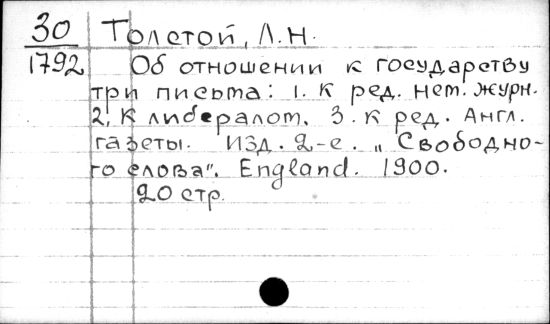 30 Толстой, Л.Н.
1792 Об отношении к государству
три письма: 1. К ред. нем. журн.
2. К либералом. 3. К ред. Англ.
газеты. Изд. 2-е. „Свободно-
го слова". England. 1900.
20 стр.